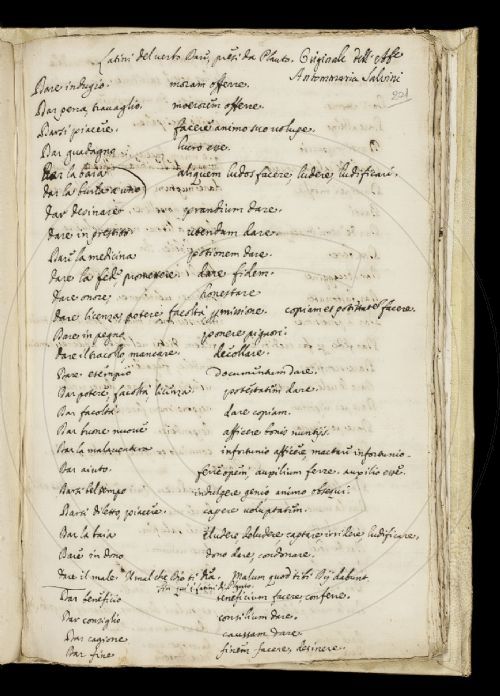 Latini del verbo Dare, presi da Plauto. Originale dell' Abe
Antommaria Salvini
221
Dare indugio moram offerre.
Dar pena, travaglio. moerorem offerre.
Darsi piacere. facere animo suo volupe.
Dar guadagno lucro esse.
Dar la baia aliquem ludos facere, ludere, ludificari.
dar la burla a uno
dar desinare prandium dare.
dare in prestito utendam dare.
Dare la medicina potionem dare.
dare la fede promettere. dare fidem.
dare onore honestare
dare licenza, potere, facoltà, permissione. copiam et potestatem facere.
Dare in pegno ponere pignori.
dare il tracollo, mancare. decollare.
Dare esempio Documentum dare.
Dar potere, facoltà licenza potestatem dare.
Dar facoltà dare copiam.
Dar buone nuove afficere bonis nuntijs.
Dar la malaventura infortunio afficere, mactare infortunio.
Dar aiuto ferre opem, auxilium ferre, auxilio esse.
Darsi bel tempo indulgere genio animo obsequi.
Darsi diletto, piacere. capere voluptatem.
Dar la baia eludere, deludere captare irridere ludificare.
Dare in dono dono dare, condonare.
dare il male. Il mal che Dio ti dia. Malum quod tibi Dij dabunt.
Dar beneficio beneficium facere, conferre.
Dar consiglio consilium dare.
Dar cagione caussam dare.
Dar fine finem facere, desinere.